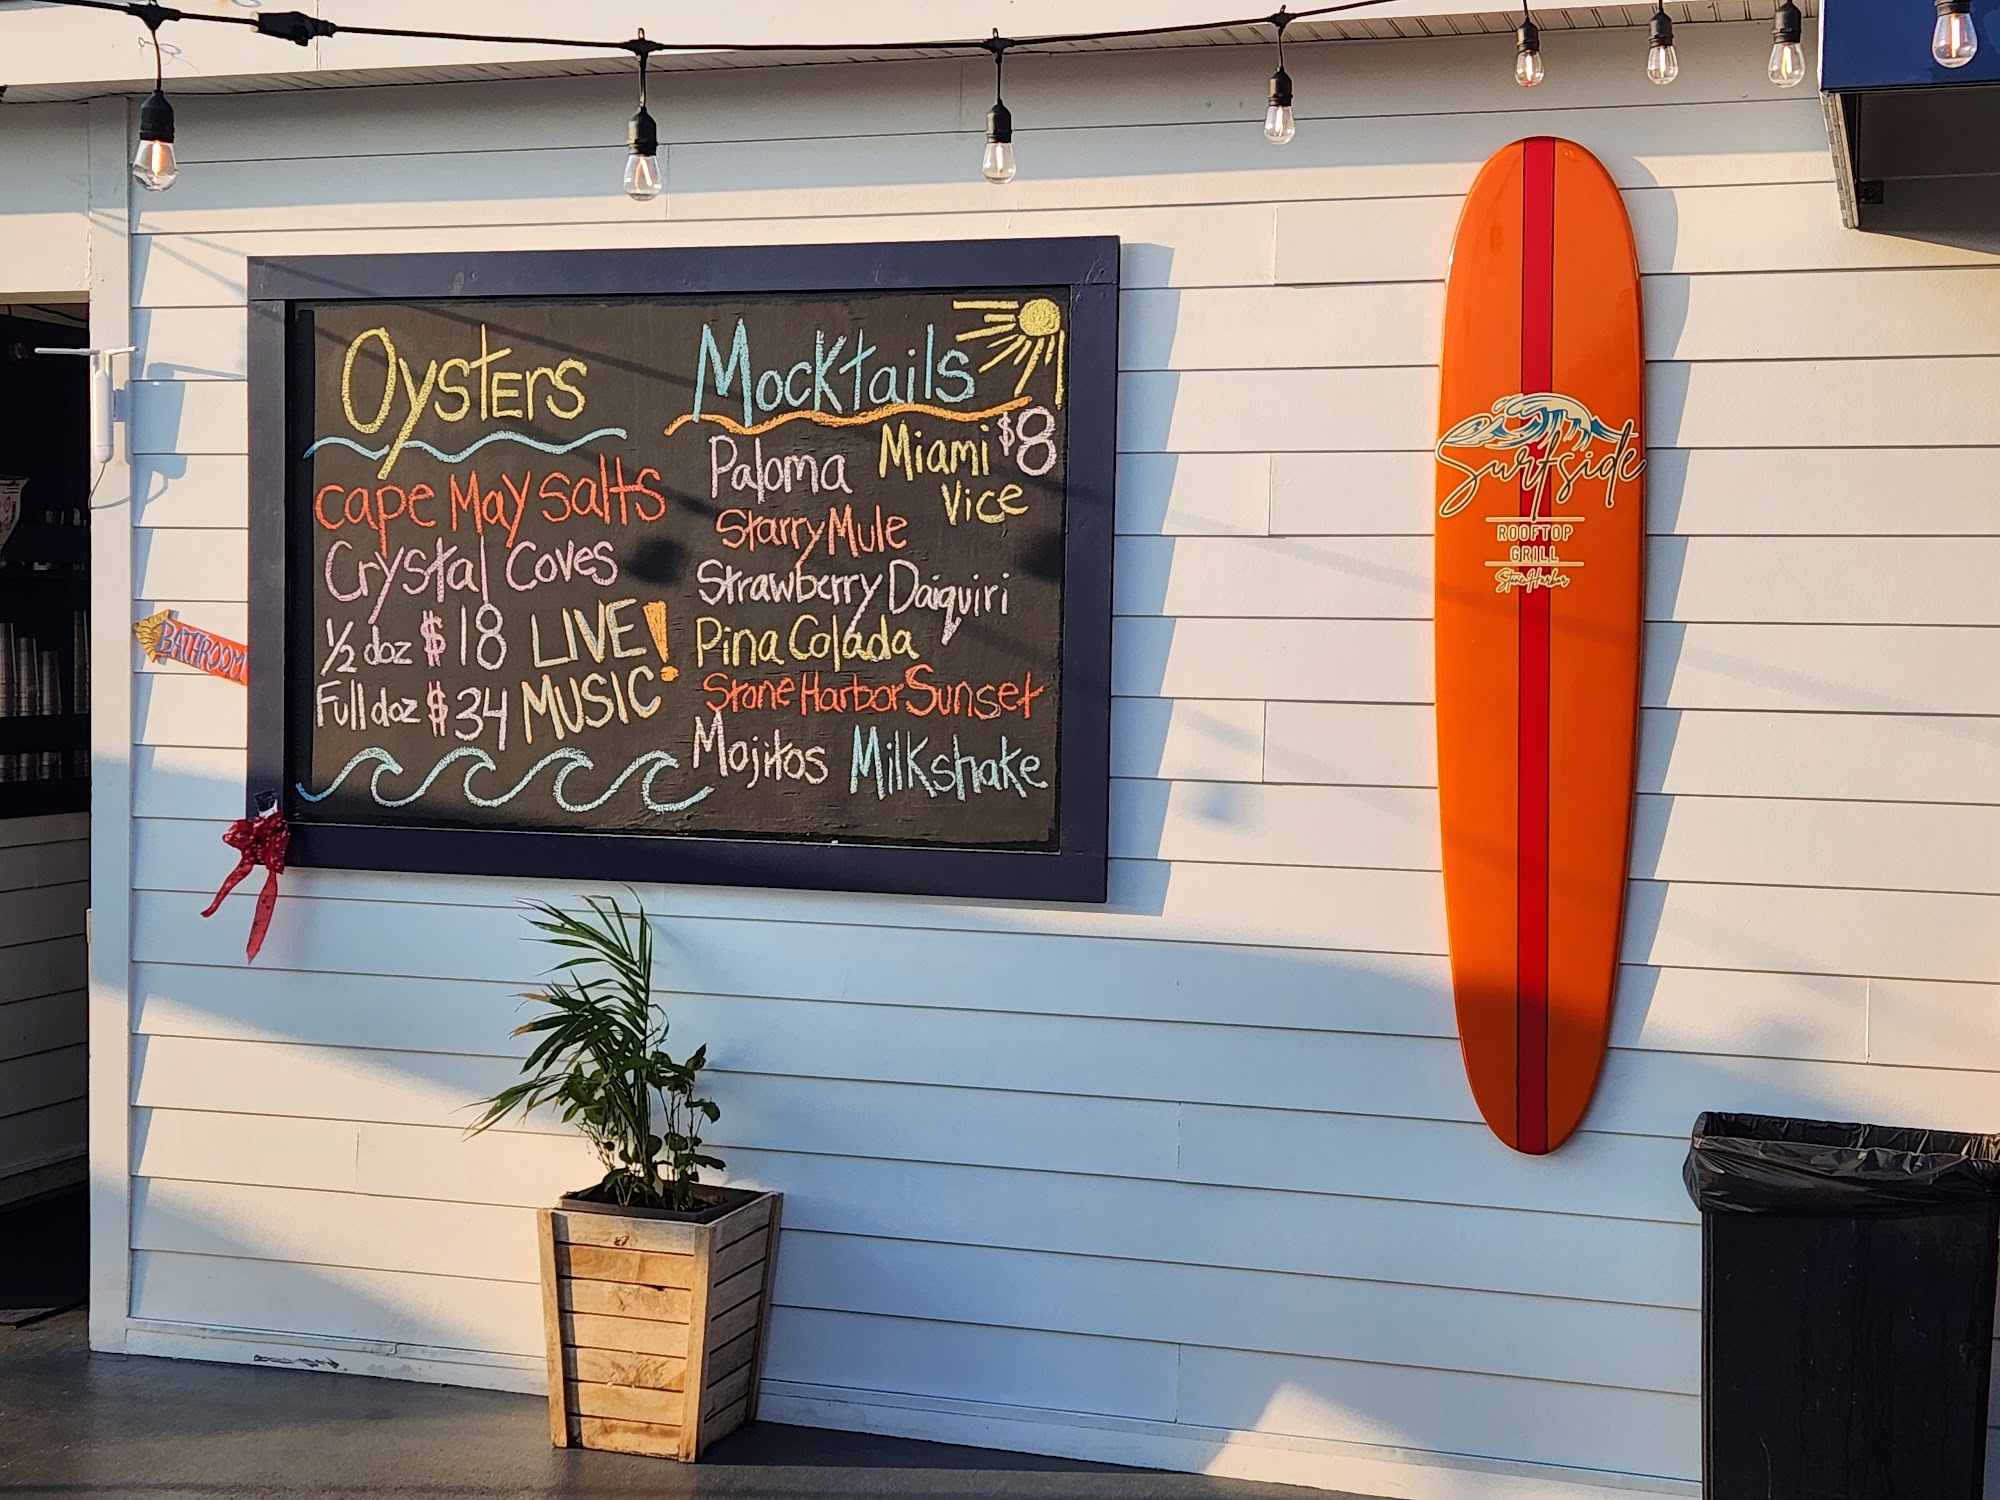 Oysters
Cape May Salts
Crystal Coves
1/2 doz $18
Full doz $34
LIVE!
MUSIC
Mocktails
$8
Paloma
Miami
Vice
Starry Mule
Strawberry Daiquiri
Pina Colada
Stone Harbor Sunset
Mojitos
Milkshake
BATHROOM
Surfside
ROOFTOP
GRILL
Stone Harbor